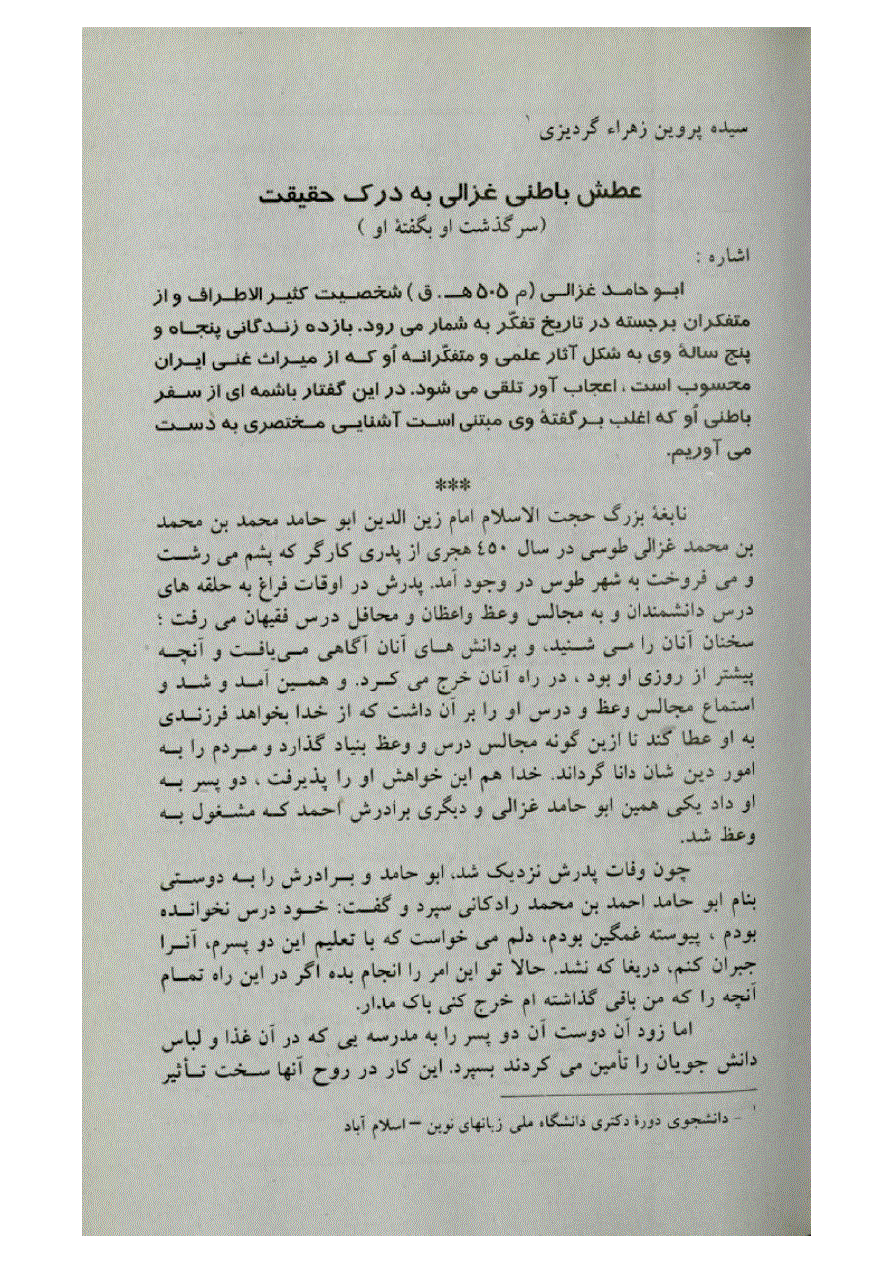 سیده پروین زهراء گردیزی ۱
عطش باطنی غزالی به درک حقیقت
(سرگذشت او بگفتۀ او )
اشاره :
ابـو حامـد غزالـی (م ۵۰۵ هـ. ق ) شخصیت کثیـر الاطـراف و از
متفکران برجسته در تاریخ تفکّر به شمار می رود. بازده زنـدگانی پنجـاه و
پنج سالۀ وی به شکل آثار علمی و متفکّرانـه اُو کـه از میـراث غنـی ایـران
محسوب است ، اعجاب آور تلقی می شود. در این گفتار باشمه ای از سـفر
باطنی اُو که اغلب بـر گفتۀ وی مبتنی اسـت آشنایـی مـختصری به دسـت
می آوریم.
***
نابغۀ بزرگ حجت الاسلام امام زین الدین ابو حامد محمد بن محمد
بن محمد غزالی طوسی در سال ٤٥٠ هجری از پدری کارگر که پشم می رشـت
و می فروخت به شهر طوس در وجود آمد. پدرش در اوقات فراغ به حلقه های
درس دانشمندان و به مجالس وعظ واعظان و محافل درس فقیهان می رفت ؛
سخنان آنان را مـی شـنید، و بردانش هـای آنان آگاهی مـی‌یافـت و آنچـه
پیشتر از روزی او بود ، در راه آنان خرج می کـرد. و همـین آمـد و شـد و
استماع مجالس وعظ و درس او را بر آن داشت که از خدا بخواهد فرزنـدی
به او عطا کند تا ازین گونه مجالس درس و وعظ بنیاد گذارد و مـردم را بـه
امور دین شان دانا گرداند. خدا هم این خواهش او را پذیرفت ، دو پسر بـه
او داد یکی همین ابو حامد غزالی و دیگری برادرش احمد کـه مشـغول بـه
وعظ شد.
چون وفات پدرش نزدیک شد، ابو حامد و بـرادرش را بـه دوسـتی
بنام ابو حامد احمد بن محمد رادکانی سپرد و گفت: خـود درس نخوانـده
بودم ، پیوسته غمگین بودم، دلم می خواست که با تعلیم این دو پسرم، آنـرا
جبران کنم، دریغا که نشد. حالا تو این امر را انجام بده اگر در این راه تمـام
آنچه را که من باقی گذاشته ام خرج کنی باک مدار.
اما زود آن دوست آن دو پسر را به مدرسه یی که در آن غذا و لباس
دانش جویان را تأمین می کردند بسپرد. این کار در روح آنها سـخت تـأثیر
۱ - دانشجوی دورۀ دکتری دانشگاه ملی زبانهای نوین – اسلام آباد